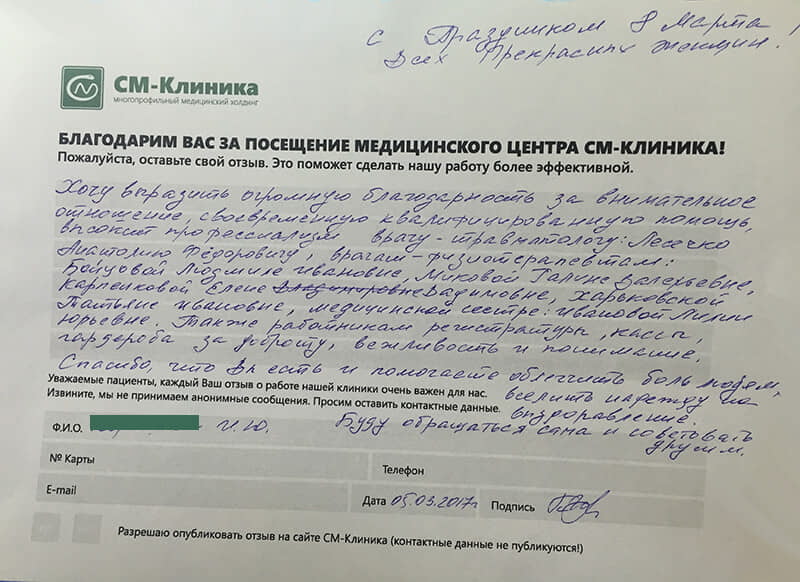 С Праздником 8 Марта!
Всех Прекрасных женщин.
СМ-Клиника
многопрофильный медицинский холдинг
БЛАГОДАРИМ ВАС ЗА ПОСЕЩЕНИЕ МЕДИЦИНСКОГО ЦЕНТРА СМ-КЛИНИКА!
Пожалуйста, оставьте свой отзыв. Это поможет сделать нашу работу более эффективной.
Хочу выразить огромную благодарность за внимательное
отношение, своевременную квалифицированную помощь,
высокий врачу-травматологу: Лесечко
Анатолию Фёдоровичу, врачам-физиотерапевтам:
Бойцовой Людмиле Ивановне, Миковой Галине Валерьевне,
Карпенковой Елене Вадимовне, Харьковской
Татьяне Ивановне, медицинской сестре: Ивановой Лилии
Юрьевне. Также работникам регистратуры, кассы,
гардероба за доброту, вежливость и понимание.
Спасибо, что Вы есть и помогаете облегчить боль людям,
Уважаемые пациенты, каждый Ваш отзыв о работе нашей клиники очень важен для нас.
вселить надежду на
Извините, мы не принимаем анонимные сообщения. Просим оставить контактные данные.
выздоровление.
Ф.И.О. И.Ю. Буду обращаться сама и советовать
другим.
№ Карты Телефон
E-mail Дата 05.03.2017г Подпись
Разрешаю опубликовать отзыв на сайте СМ-Клиника (контактные данные не публикуются!)